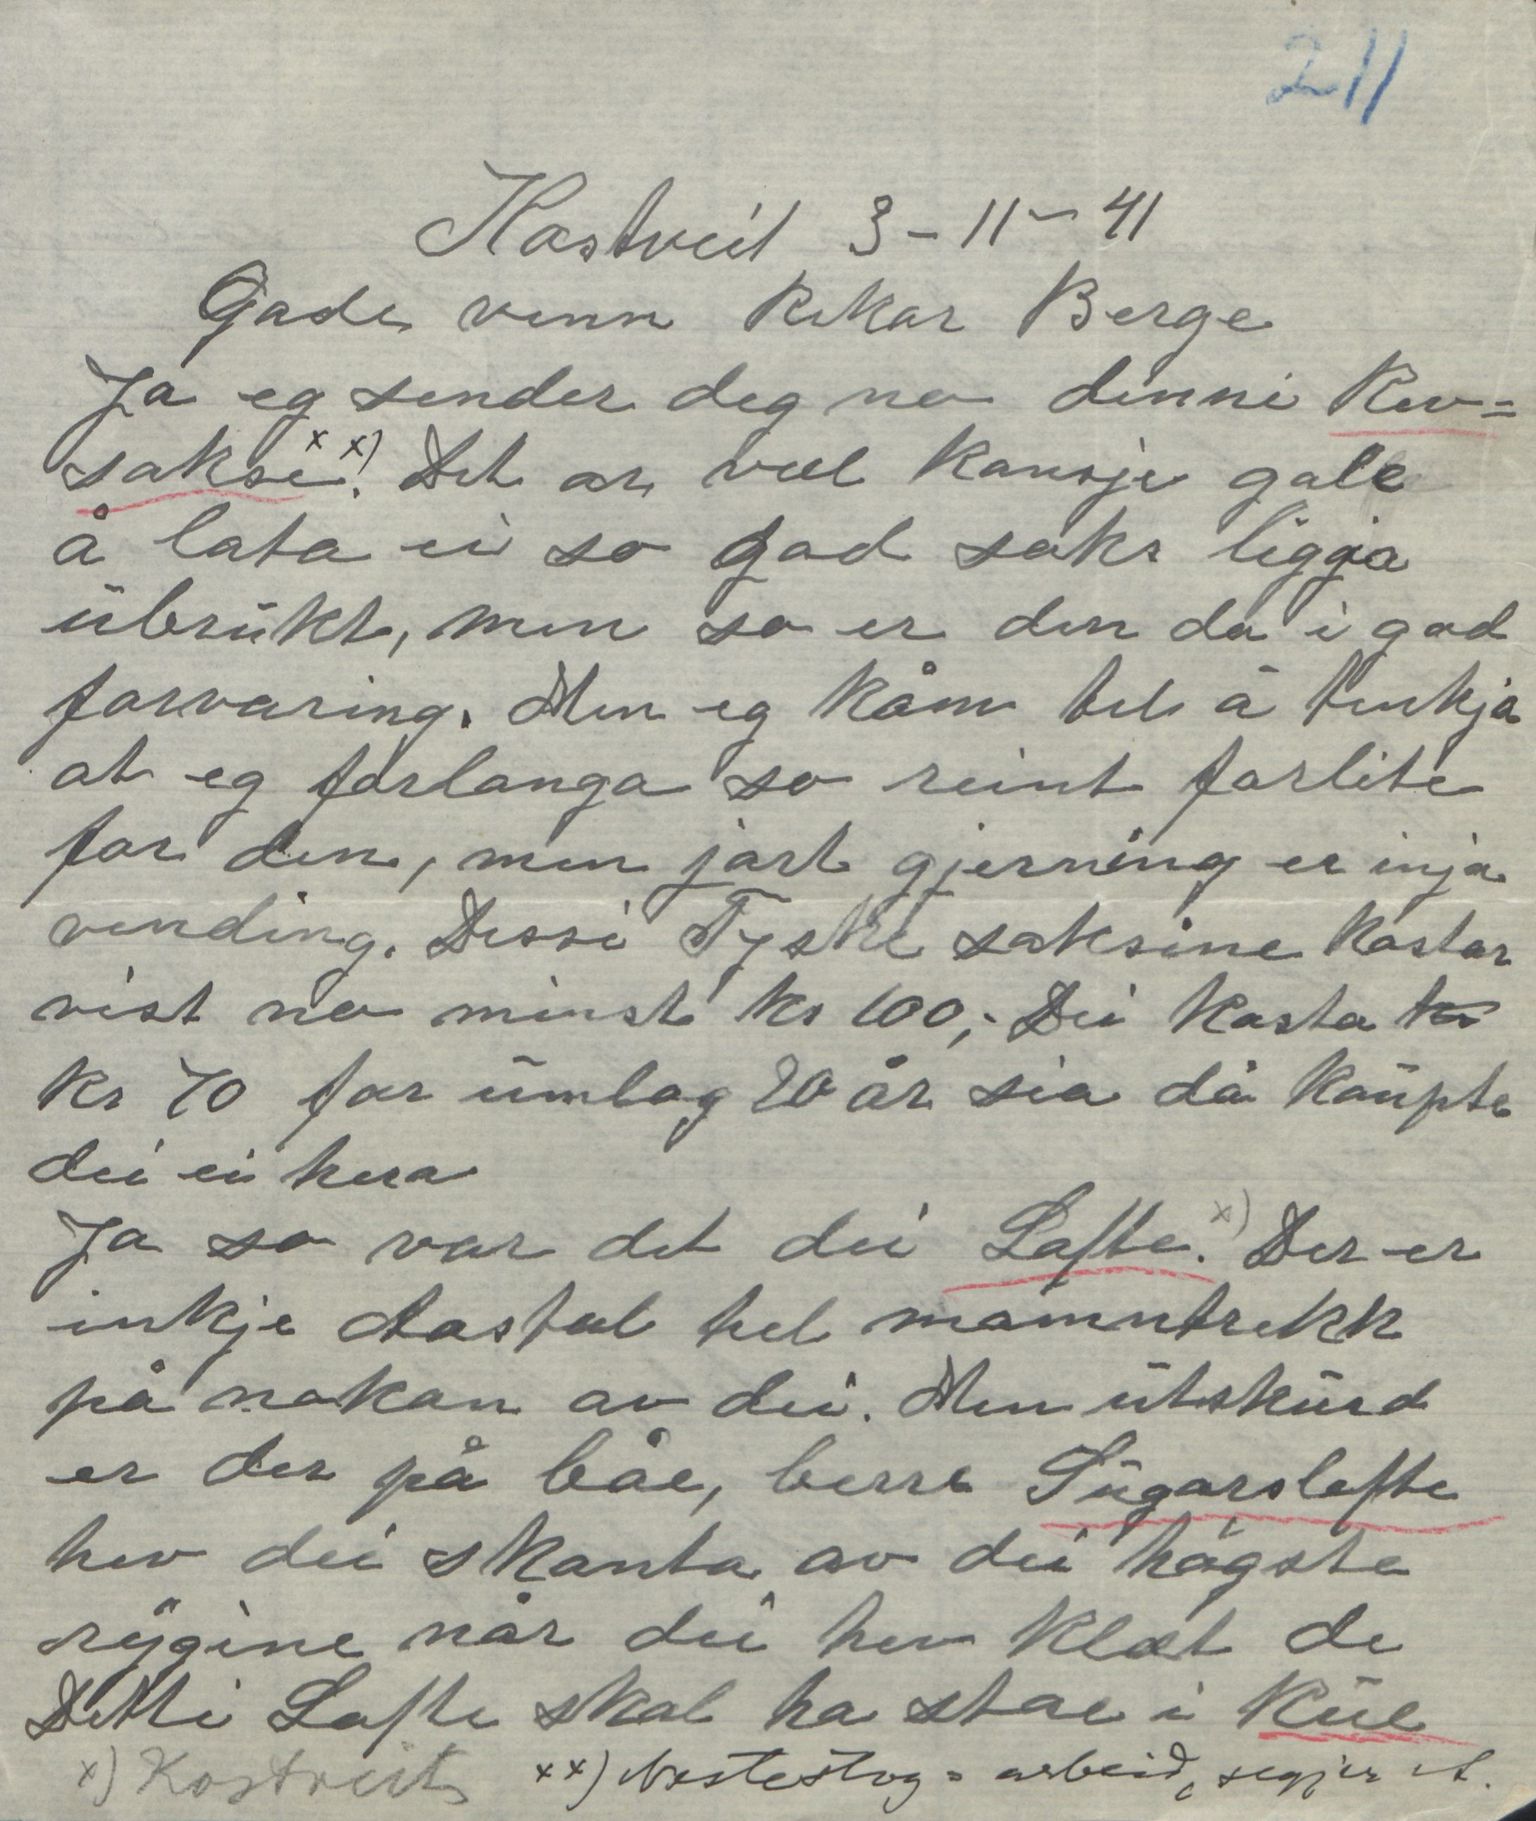 211
Kostveit 3-11-41
Gode venn Rikar Berge
Ja eg sender deg no denni Rev=
saksi xx). Det er vel kansje gale
å lata ei so god saks liggja
ubrukt, men so er den da i god
forvaring. Men eg kåm til å tenkja
at eg forlanga so reint forlite
for den, men jort gjerning er inja
vending. Dessi Tyske saksine kostar
vist no minst kr 100,- Dei kosta
kr 70 for umlag 20 år sia då kaupte
dei ei hera
Ja so var det dei Lofte. x) Der er
inkje Aastal hel mamntrekk
på nokon av dei. Men utskurd
er der på båe, berre Sugarslofte
hev dei skanta av dei högste
rygine når dei hev klæt de
Detti Lofte skal ha stae i Kūe
x) Kostveit xx) arbeid, segjer